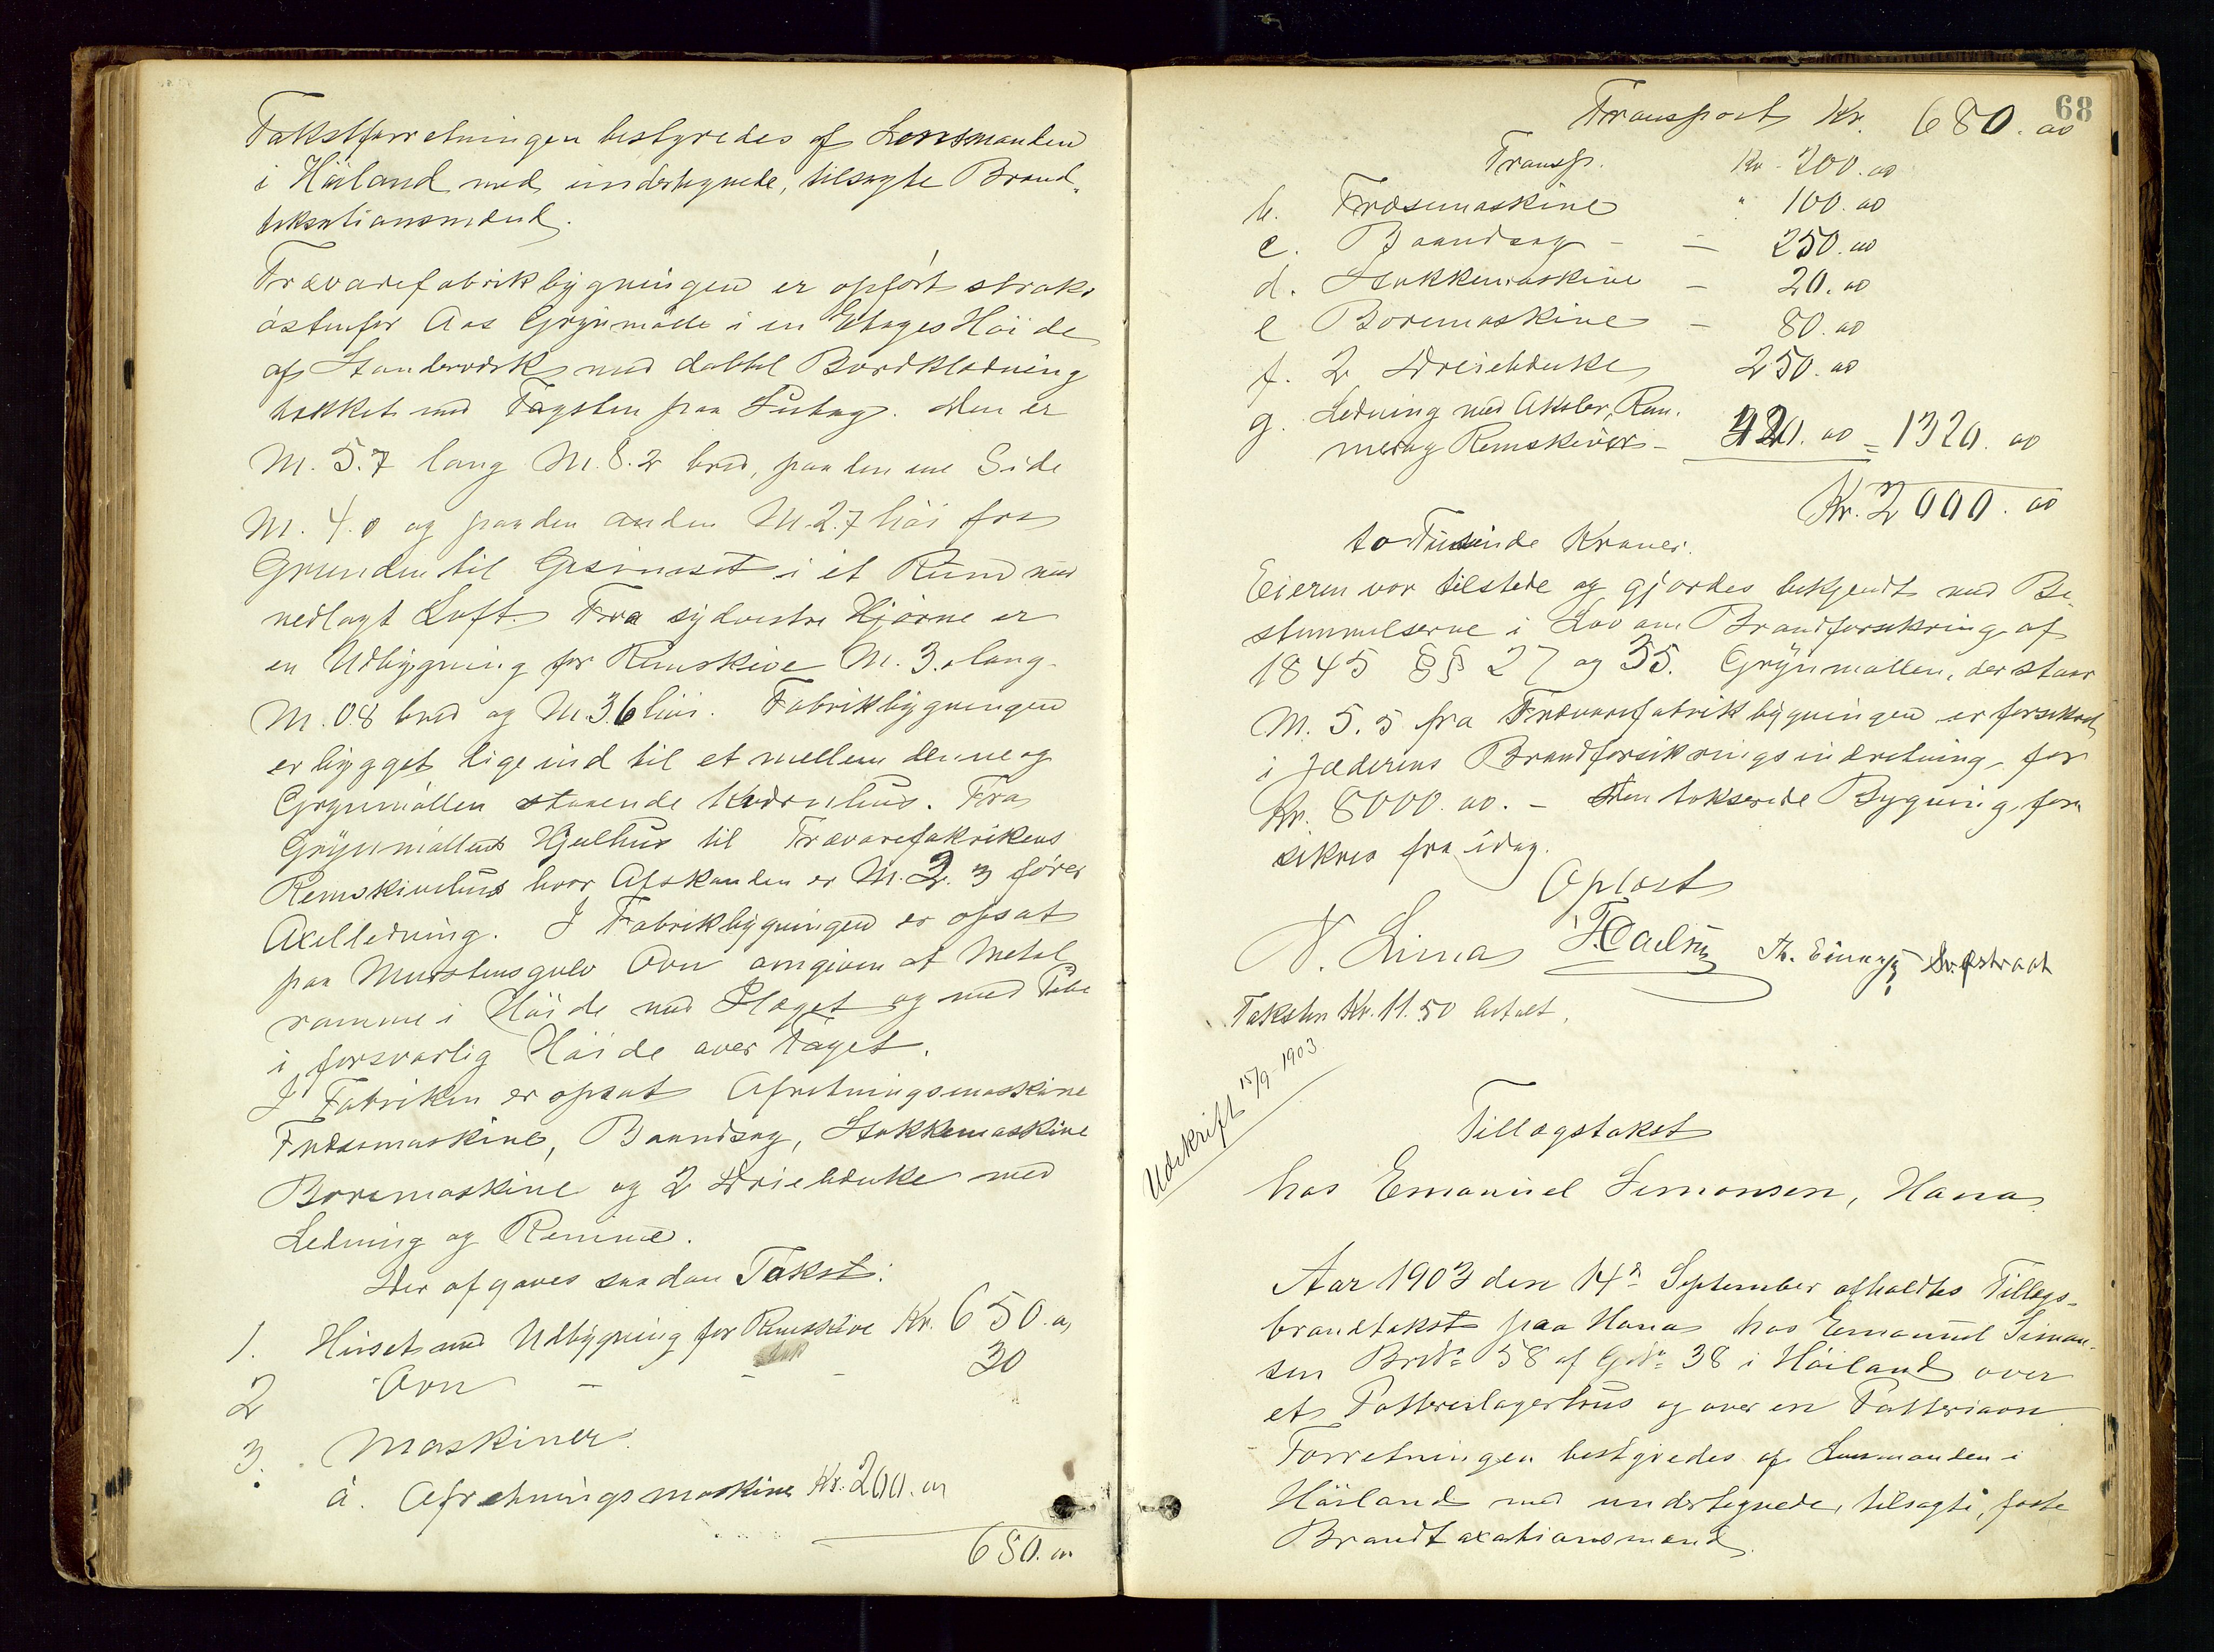 Takstforretningen bestyredes af Lensmanden
i Høiland med undertegnede, tilsagte Brand-
taksationsmænd.
Trævarefabrikbygningen er opført straks
østenfor Aas Grynmølle i en Etages Høide
af Standerværk med dobbel Bordklædning
tækket med Tagsten paa Sutag. Den er
M. 5.7 lang M. 8.2 bred, paa den ene Side
M. 4.0 og paa den anden M. 2.7 høi fra
Grunden til Gesimset i et Rum med
nedlagt Loft. Fra sydvestre Hjørne er
en Udbygning for Remskive M. 3.0 lang
M. 0.8 bred og M. 3.6 høi. Fabrikbygningen
er bygget lige ind til et mellem denne og
Grynmøllen staaende Kværnhus. Fra
Grynmøllens Hjulhus til Trævarefabrikens
Remskivehus hvor Afstanden er M. 2.3 fører
Axelledning. I Fabrikbygningen er opsat
paa Murstensgulv Ovn omgiven af Metal
ramme i Høide med Taget og med Pibe
i forsvarlig Høide over Taget.
I Fabriken er opsat Afretningsmaskine
Fræsemaskine, Baandsag, Stakkemaskine
Boremaskine og 2 Dreiebænke med
Ledning og Remme.
Der afgaves saadan Takst:
1. Huset med Udbygning for Remskive Kr. 650.00
2 Ovn - - - 30
3. Maskiner.
a. Afretningsmaskine Kr. 200.00
680.00
68
Transport Kr. 680.00
Transp. Kr. 200.00
b. Fræsemaskine " 100.00
c. Baandsag - - 250.00
d. Stakkemaskine - 20.00
e Boremaskine - 80.00
f. 2 Dreiebænke 250.00
g. Ledning med Aksler, Rem-
mer og Remskiver - 420.00 = 1320.00
Kr. 2000.00
to Tusinde Kroner.
Eieren var tilstede og gjordes bekjendt med Be-
stemmelserne i Lov om Brandforsikring af
1845 §§ 27 og 35. Grynmøllen, der staar
M. 5.5 fra Trævarefabrikbygningen er forsikret
i Jæderens Brandforsikringsindretning for
Kr. 8000.00. - Den takserede Bygning for-
sikres fra idag.
Oplæst
N. Lima
Taksten Kr. 11.50 betalt.
Udskrift 15/9 1903
Tillægstakst
hos Emanuel Simonsen, Hana
Aar 1903 den 14de September afholdtes Tillægs-
brandtakst paa Hana hos Emanuel Simon-
sen Brno 58 af Gno 38 i Høiland over
et Potterilagerhus og over en Potteriovn.
Forretningen bestyredes af Lensmanden i
Høiland med undertegnede, tilsagte, faste
Brandtaxationsmænd.